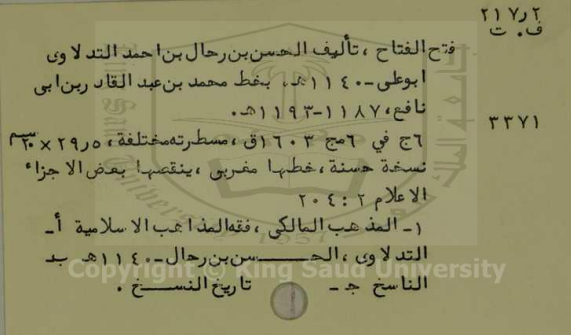 ٢١٧٫٢
ف. ت
فتح الفتاح ، تأليف الحسن بن رحال بن احمد التدلاوى
ابوعلى - ١١٤٠هـ. بخط محمد بن عبد القادر بن ابى
نافع، ١١٨٧-١١٩٣هـ.
٣٣٧١
٦ج في ٦مج ١٦٠٣ق ، مسطرته مختلفة ، ٢٩٫٥ × ٢٠سم
نسخة حسنة ، خطها مغربى ، ينقصها بعض الاجزاء
الاعلام ٢ : ٢٠٤
١- المذهب المالكى ، فقه المذاهب الاسلامية أ-
التدلاوى ، الحسن بن رحال - ١١٤٠هـ ب-
الناسخ ج- تاريخ النسخ .
Copyright © King Saud University
1957